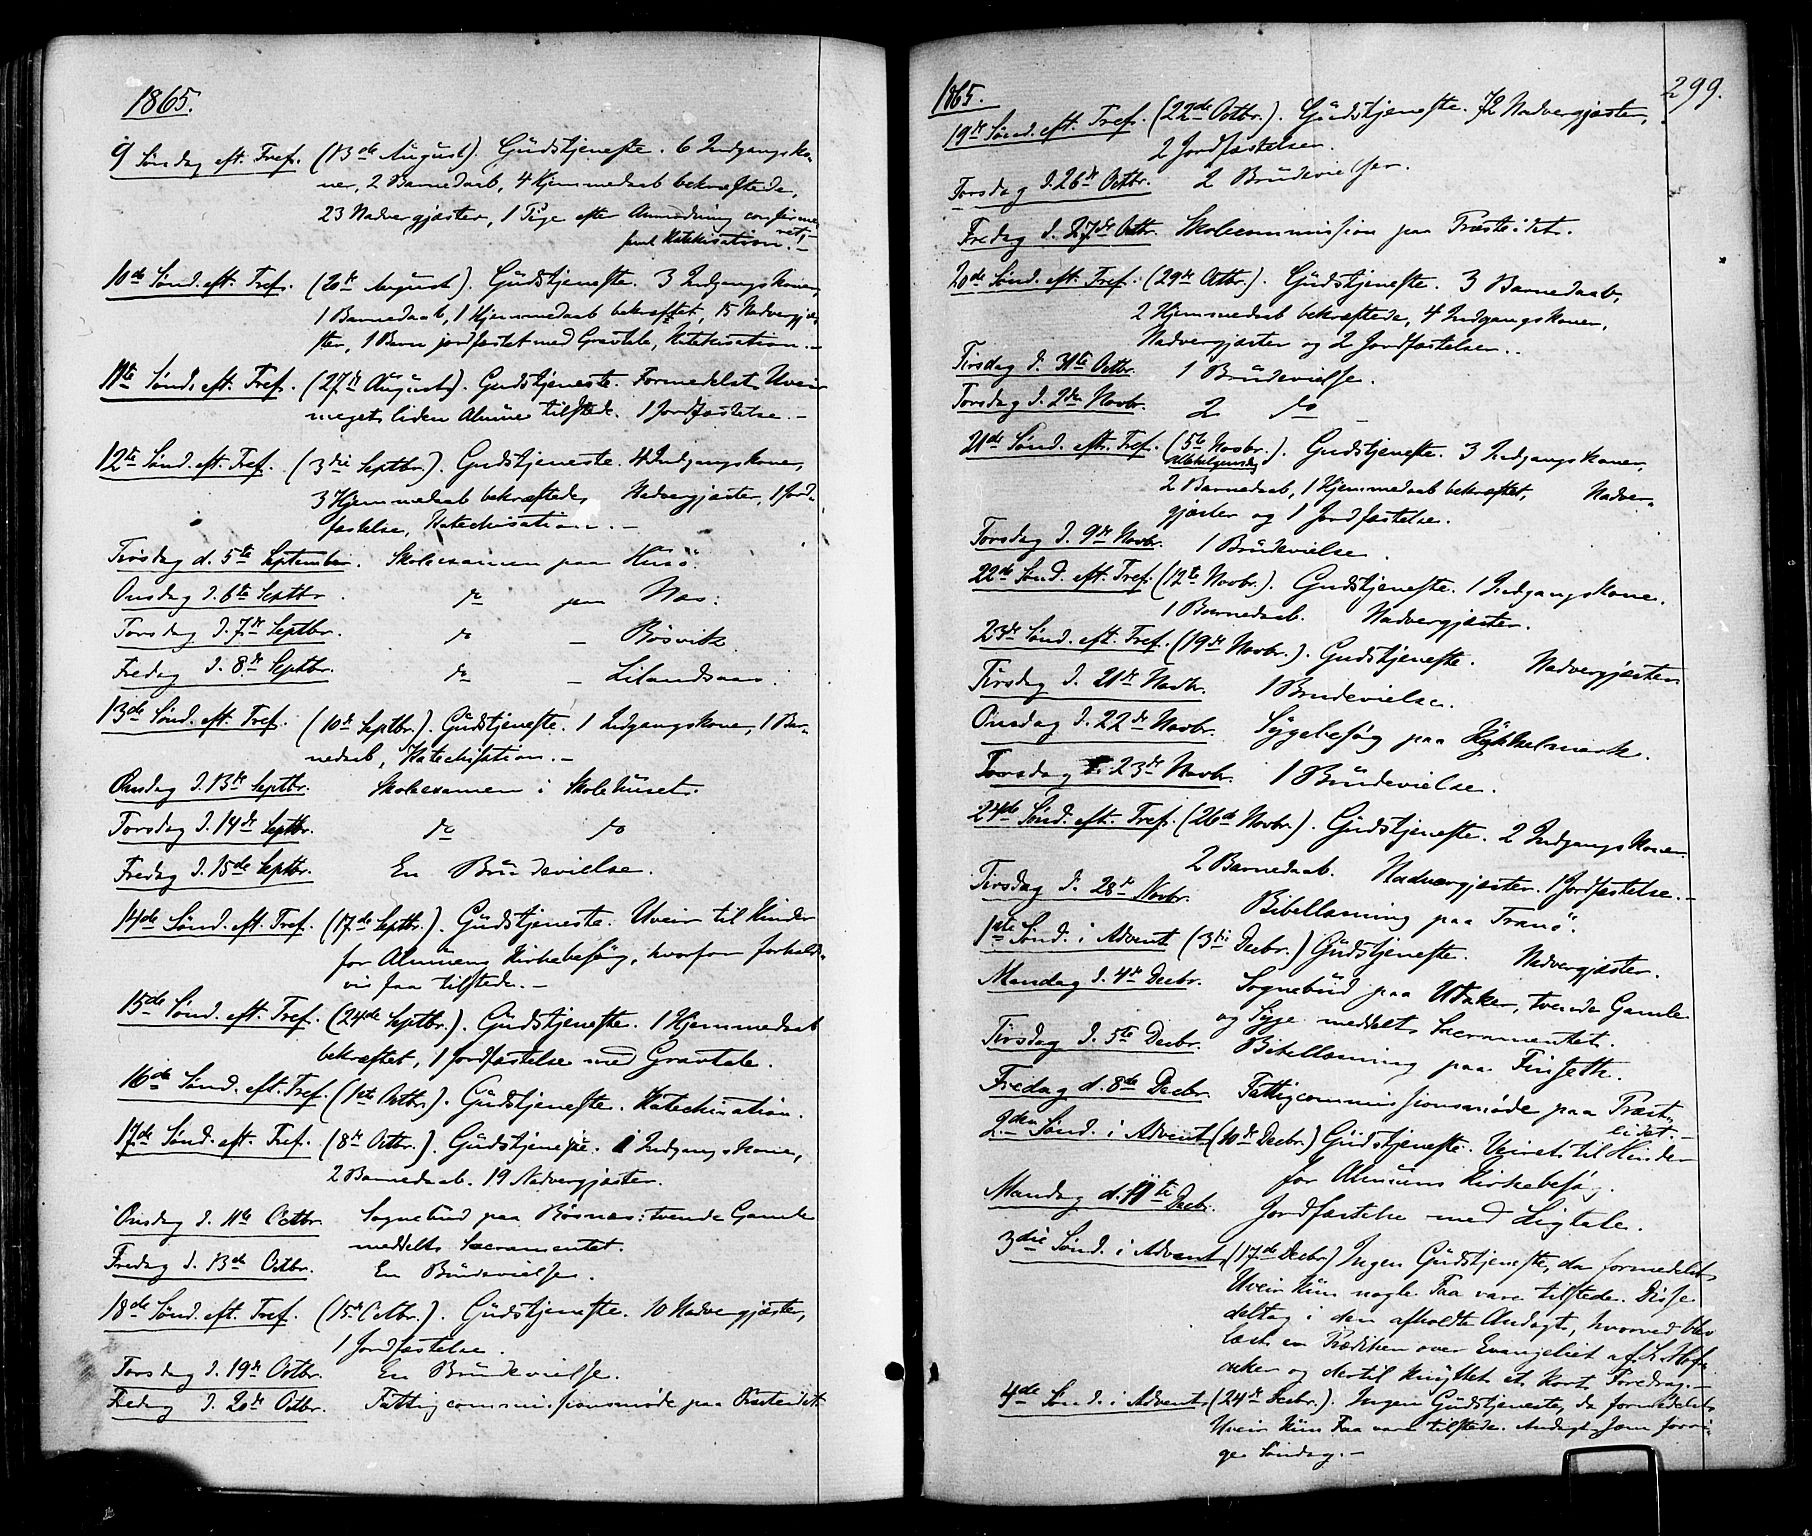 1865.
9 Søndag eft. Tref. (13de August). Gudstjeneste. 6 Indgangsko-
ner, 2 Barnedaab, 4 Hjemmedaab bekræftede,
23 Nadvergjæster, 1 Pige efter Anmodning confirme-
ret,
samt Katekisation.-
10de Sønd. eft. Tref. (20de August). Gudstjeneste. 3 Indgangskoner,
1 Barnedaab, 1 Hjemmedaab bekræftet, 15 Nadvergjæ-
ster, 1 Barn jordfæstet med Gravtale, Katekisation.-
11te Sønd. eft. Tref. (27de August). Gudstjeneste. Formedelst Uveir
meget liden Almue tilstede. 1 Jordfæstelse.-
12te Sønd. eft. Tref. (3die Septbr.). Gudstjeneste. 4 Indgangskoner,
3 Hjemmedaab bekræftede, Nadvergjæster, 1 Jord-
fæstelse, Katechisation.-
Tirsdag d. 5te September. Skoleexamen paa Husö.
Onsdag d. 6te Septbr. do paa Næs.
Torsdag d. 7de Septbr. do - Bösvik
Fredag d. 8de Septbr. do - Lilandsaas.
13de Sønd. eft. Tref. (10de Septbr.). Gudstjeneste. 1 Indgangskone, 1 Bar-
nedaab, Katechisation.-
Onsdag d. 13de Septbr. Skoleexamen i Skolehuset.
Torsdag d. 14de Septbr. do do
Fredag d. 15de Septbr. En Brudevielse.
14de Sønd. eft. Tref. (17de Septbr.). Gudstjeneste. Uveir til Hinder
for Almuens Kirkebesøg, hvorfor forhold-
vis faa tilstede.-
15de Sønd. eft. Tref. (24de Septbr.). Gudstjeneste. 1 Hjemmedaab
bekræftet, 1 Jordfæstelse med Gravtale.
16de Sønd. eft. Tref. (1ste Octbr.). Gudstjeneste. Katechisation.
17de Sønd. eft. Tref. (8de Octbr.). Gudstjeneste. 1 Indgangskone,
2 Barnedaab. 19 Nadvergjæster.
Onsdag d. 11te Octbr. Sognebud paa Bösnæs: tvende Gamle
meddelt Sacramentet.
Fredag d. 13de Octbr. En Brudevielse.
18de Sønd. eft. Tref. (15de Octbr.). Gudstjeneste. 10 Nadvergjæster,
1 Jordfæstelse.
Torsdag d. 19de Octbr. En Brudevielse.
Fredag d. 20de Octbr. Fattigcommissionsmøde paa Præsteidet
1865.
299.
19de Sønd. eft. Tref. (22de Octbr.). Gudstjeneste. 72 Nadvergjæster,
2 Jordfæstelser.
Torsdag d. 26de Octbr. 2 Brudevielser.
Fredag d. 27de Octbr. Skolecommission paa Præsteidet.
20de Sønd. eft. Tref. (29de Octbr.). Gudstjeneste. 3 Barnedaab,
2 Hjemmedaab bekræftede, 4 Indgangskoner,
Nadvergjæster og 2 Jordfæstelser..
Tirsdag d. 31te Octbr. 1 Brudevielse.
Torsdag d. 2den Novbr. 2 do
21de Sønd. eft. Tref. (5te Novbr.). Gudstjeneste. 3 Indgangskoner,
Allehelgensdag
2 Barnedaab, 1 Hjemmedaab bekræftet, Nadver-
gjæster og 1 Jordfæstelse.
Torsdag d. 9de Novbr. 1 Brudevielse.
22de Sønd. eft. Tref. (12te Novbr.). Gudstjeneste. 1 Indgangskone.
1 Barnedaab. Nadvergjæster.
23de Sønd. eft. Tref. (19de Novbr.). Gudstjeneste. Nadvergjæster.
Tirsdag d. 21de Novbr. 1 Brudevielse.
Onsdag d. 22de Novbr. Sygebesøg paa
Torsdag d. 23de Novbr. 1 Brudevielse.
24de Sønd. eft. Tref. (26de Novbr.). Gudstjeneste. 2 Indgangskoner.
2 Barnedaab. Nadvergjæster. 1 Jordfæstelse.-
Tirsdag d. 28de Novbr. Bibellæsning paa Tranö.
1ste Sønd. i Advent (3die Decbr.) Gudstjeneste. Nadvergjæster.
Mandag d. 4de Decbr. Sognebud paa Utaker, tvende Gamle
og Syge meddelt Sacramentet.
Tirsdag d. 5te Decbr. Bibellæsning paa Finseth.
Fredag d. 8de Decbr. Fattigcommissionsmøde paa Præst-
eidet.-
2den Sønd. i Advent (10de Decbr.) Gudstjeneste. Veiret til Hinder
for Almuens Kirkebesøg.
Mandag d. 11te Decbr. Jordfæstelse med Ligtale.
3die Sønd. i Advent (17de Decbr.) Ingen Gudstjeneste, da formedelst
Uveir kun nogle Faa vare tilstede. Disse
deltog i den afholdte Andagt, hvorved blev
læst en Prædiken over Evangeliet af
acker og dertil knyttet et kort Foredrag.-
4de Sønd. i Advent (24de Decbr.). Ingen Gudstjeneste, da formedelst
Uveir kun Faa vare tilstede. Andagt som forri-
ge Søndag.-